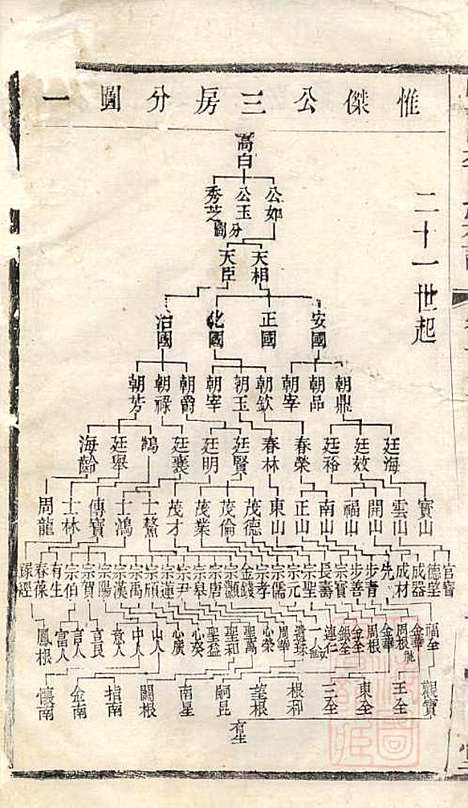 惟傑公三房分圖一
二十一世起
高白
公如 公玉分圖 秀芝
天相 天臣
安國 正國 化國 治國
朝鼎 朝品 朝宰 朝欽 朝玉 朝宰 朝爵 朝祿 朝芳
廷海 廷效 廷裕 春榮 春林 廷賢 廷明 廷襄 廷舉 海齡
寶山 雲山 開山 福山 南山 正山 東山 茂德 茂倫 茂業 茂才 士鰲 士鴻 傳寶 士林 周龍
官寶 德堂 成器 成材 步青 步善 宗寶 長壽 宗聖 宗元 宗儒 宗孝 金錢 宗唐 宗尹 宗蓮 宗禹 宗漢 宗陽 宗寶 宗伯 有生 春保
福全 金華 周根 金華 周根 金全 銀全 連仁 周華 心榮 聖萬 聖和 聖益 心葵 心廣 山人 中人 意人 言良 言人 富人 鳳根
觀寶 王全 東全 三全 根和 南星 關根 指南 金南 懷南
有生